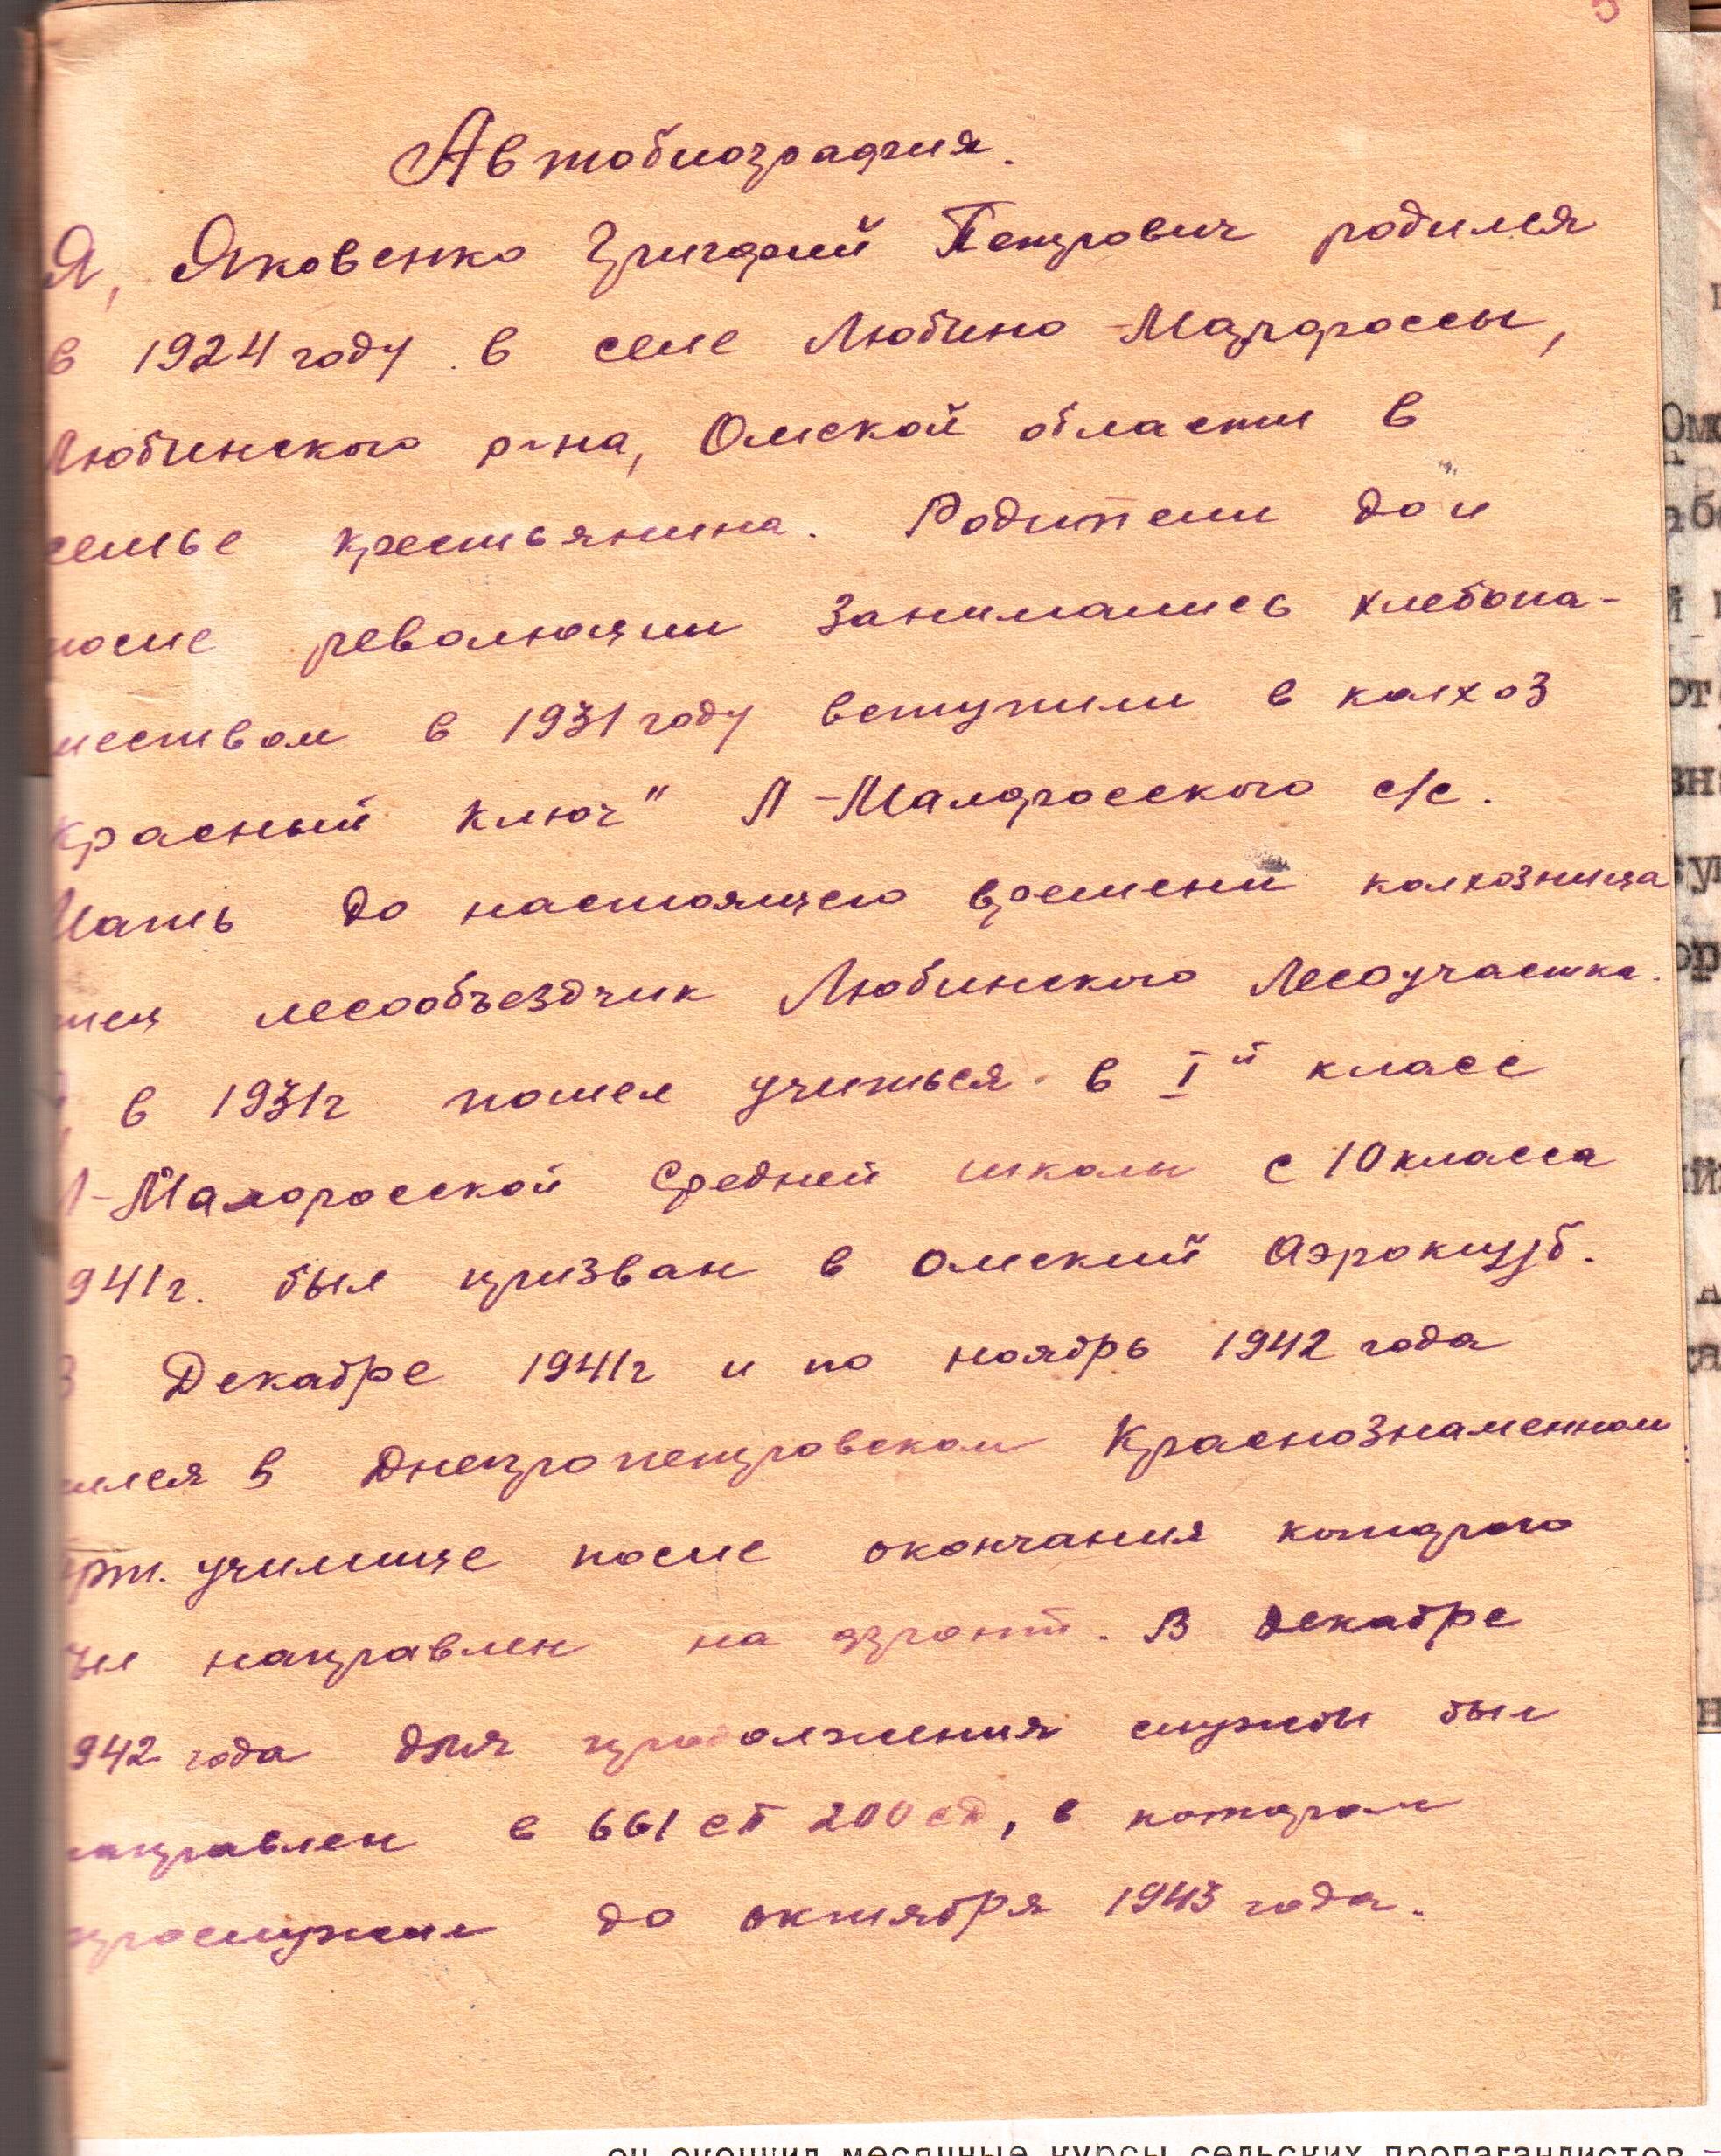 Автобиография.
Я, Яковенко Григорий Петрович родился
в 1924 году в селе Любино-Малороссы,
Любинского р-на, Омской области в
семье крестьянина. Родители до и
после революции занимались хлебопа-
шеством в 1931 году вступили в колхоз
Красный Ключ" Л-Малоросского с/с.
Мать до настоящего времени колхозница
тец лесообъездчик Любинского Лесоучастка.
в 1931г пошел учиться в Iй класс
Л-Малоросской Средней школы с 10 класса
941г. был призван в Омский Аэроклуб.
В Декабре 1941г и по ноябрь 1942 года
ился в Днепропетровском Краснознаменном
арт. училище после окончания которого
был направлен на фронт. В Декабре
942 года для продолжения службы был
направлен в 661 сп 200 сд, в котором
прослужил до октября 1943 года.
он окончил месячные курсы сельских пропагандистов